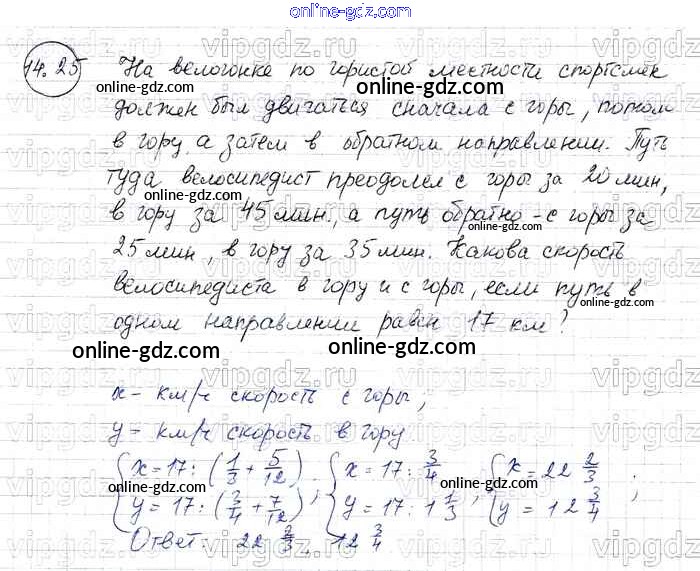 online-gdz.com
14.25 На велогонке по гористой местности спортсмен
online-gdz.com
online-gdz.com
должен был двигаться сначала с горы, потом
в гору, а затем в обратном направлении. Путь
туда велосипедист преодолел с горы за 20 мин,
online-gdz.com
в гору за 45 мин., а путь обратно - с горы за
online-gdz.com
25 мин, в гору за 35 мин. Какова скорость
online-gdz.com
велосипедиста в гору и с горы, если путь в
online-gdz.com
одном направлении равен 17 км?
online-gdz.com
online-gdz.com
x - км/ч скорость с горы,
y = км/ч скорость в гору
{ x = 17 : (1/3 + 5/12) { x = 17 : 3/4 { x = 22 2/3
online-gdz.com
{ y = 17 : (3/4 + 7/12) ; { y = 17 : 1 1/3 ; { y = 12 3/4 ;
Ответ: 22 2/3, 12 3/4
online-gdz.com
online-gdz.com